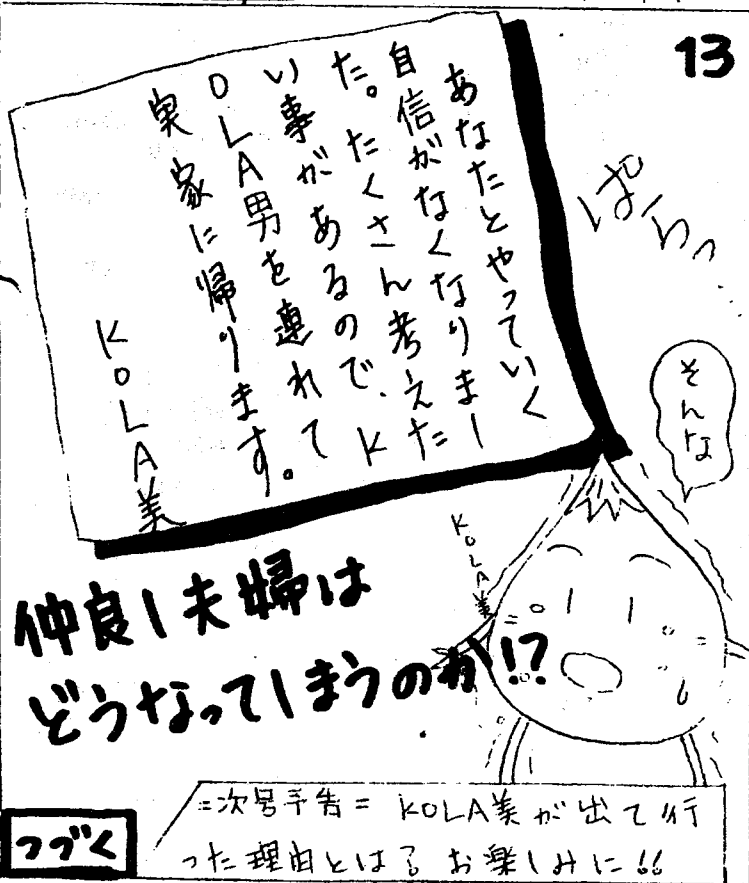 13
あなたとやっていく
自信がなくなりまし
た。たくさん考えた
い事があるので、K
OLA男を連れて
実家に帰ります。
KOLA美
ぱらっ
そんな
KOLA美
仲良し夫婦は
どうなってしまうのか!?
つづく
=次号予告= KOLA美が出て行
った理由とは? お楽しみに!!